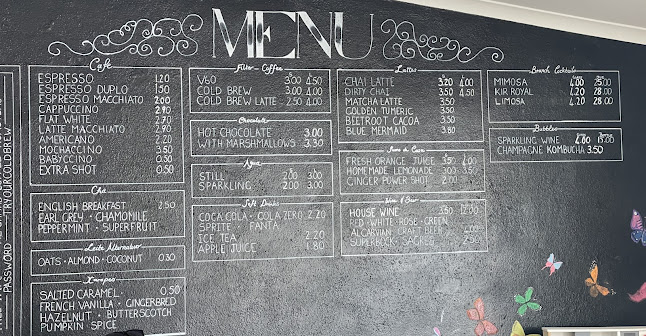 MENU
Café
ESPRESSO 1.20
ESPRESSO DUPLO 1.50
ESPRESSO MACCHIATO 2.00
CAPPUCCINO 2.90
FLAT WHITE 2.70
LATTE MACCHIATO 2.90
AMERICANO 2.20
MOCHACCINO 3.50
BABYCCINO 0.50
EXTRA SHOT 0.50
Chá
ENGLISH BREAKFAST 2.50
EARL GREY · CHAMOMILE
PEPPERMINT · SUPERFRUIT
Leite Alternativo
OATS · ALMOND · COCONUT 0.30
Xaropes
SALTED CARAMEL · 0.50
FRENCH VANILLA · GINGERBRED
HAZELNUT · BUTTERSCOTCH
PUMPKIN SPICE
Filter-Coffee
V60 3.00 4.50
COLD BREW 3.00 4.00
COLD BREW LATTE 2.50 4.00
Chocolate
HOT CHOCOLATE 3.00
WITH MARSHMALLOWS 3.30
Agua
STILL 2.00 3.00
SPARKLING 2.00 3.00
Soft Drinks
COCA COLA · COLA ZERO 2.20
SPRITE · FANTA
ICE TEA 2.20
APPLE JUICE 1.80
Lattes
CHAI LATTE 3.20 4.00
DIRTY CHAI 3.50 4.50
MATCHA LATTE 3.50
GOLDEN TUMERIC 3.50
BEETROOT CACOA 3.50
BLUE MERMAID 3.80
FRESH ORANGE JUICE 3.50 4.00
HOMEMADE LEMONADE 3.00 3.50
GINGER POWER SHOT 2.00
Wine & Beer
HOUSE WINE 3.50 12.00
RED · WHITE · ROSE · GREEN
ALGARVIAN CRAFT BEER 4.00
SUPERBOCK · SAGRES 2.50
Brunch Cocktails
MIMOSA 4.00 25.00
KIR ROYAL 4.20 28.00
LIMOSA 4.20 28.00
Bubbles
SPARKLING WINE 4.00
CHAMPAGNE KOMBUCHA 3.50
TRYYOURCOLDBREW
PASSWORD